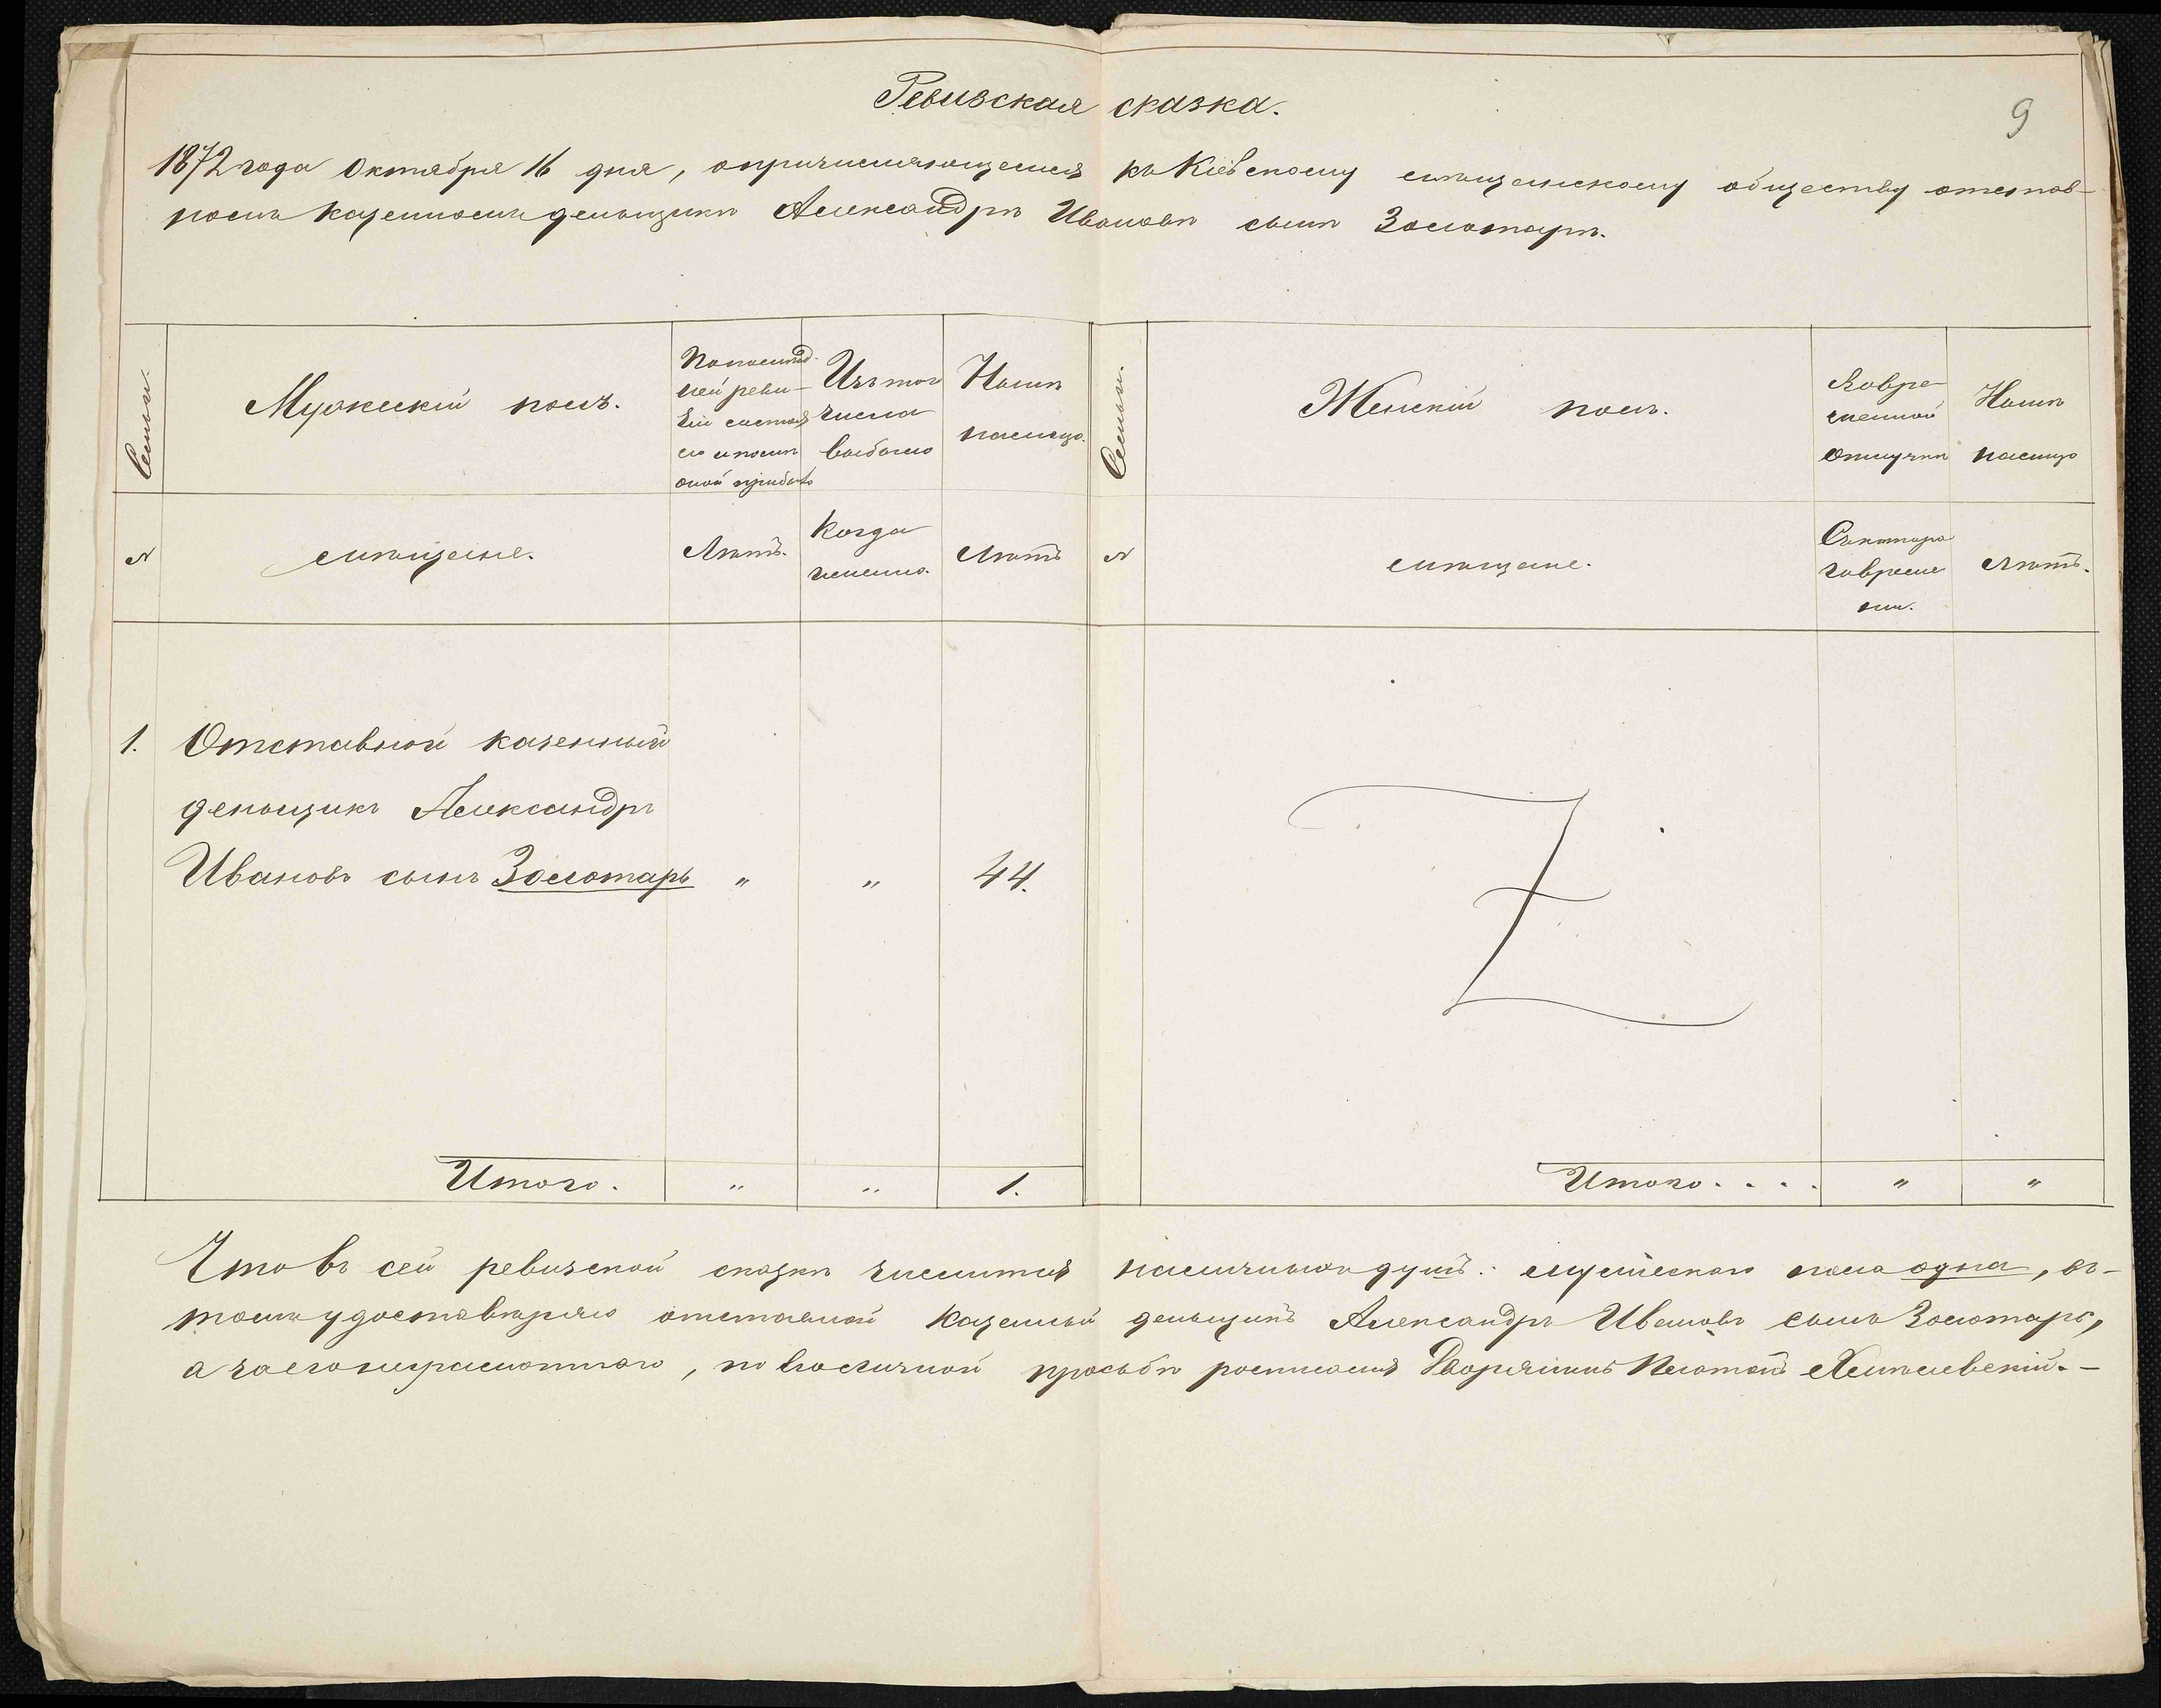 Ревизская сказка.
9
1872 года Октября 16 дня, о причисляющемся къ Кіевскому мѣщанскому обществу отстав-
номъ казенномъ деньщикѣ Александрѣ Ивановѣ сынѣ Золотарѣ.
Семьи.
Мужескій полъ.
По послѣд-
ней реви-
зіи состоя
ло и послѣ
оной прибыло
Изъ того
числа
выбыло
Нынѣ
налицо.
Семьи.
Женскій полъ.
Во вре-
менной
отлучкѣ
Нынѣ
налицо
№
мѣщане.
Лѣтъ.
Когда
именно.
Лѣтъ
№
мѣщане.
Съ котора
го време
ни.
Лѣтъ.
1. Отставной казенный
деньщикъ Александръ
Ивановъ сынъ Золотарь " " 44.
Итого. " " 1.
Итого. . . . " "
Что въ сей ревизской сказкѣ числится наличныхъ душъ: мужескаго пола одна, въ
томъ удостовѣряю отставной казенный деньщикъ Александръ Ивановъ сынъ Золотарь,
а за его неграмотнаго, по его личной просьбѣ росписался Дворянинъ Платонъ Хмѣлевскій.-